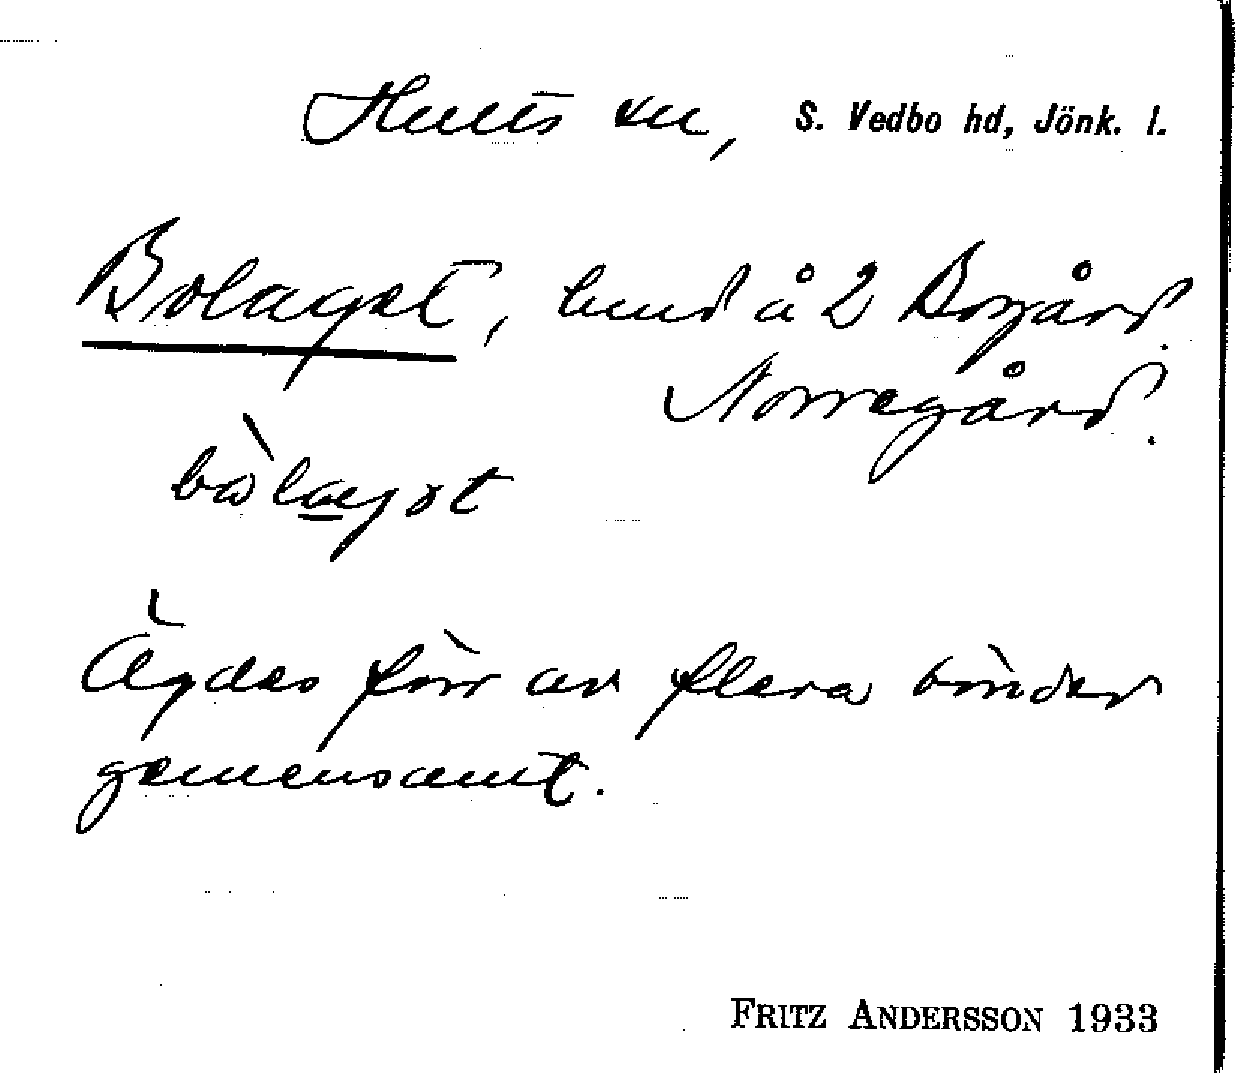 Hults sn, S. Vedbo hd, Jönk. l.
Bolaget, lund å 2 Borgård.
Norregård.
bòlagət
Ägdes förr av flera bönder
gemensamt.
FRITZ ANDERSSON 1933